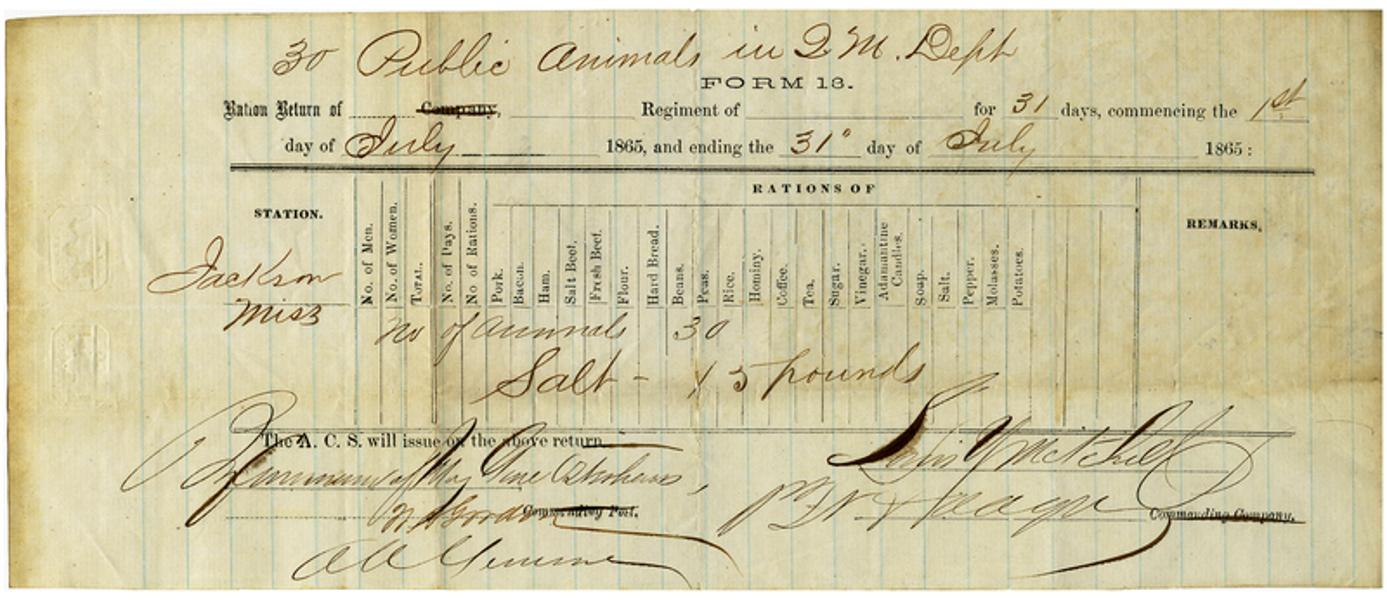 30 Public Animals in Q M. Dept
FORM 13.
Ration Return of Company, Regiment of for 31 days, commencing the 1st
day of July 1865, and ending the 31" day of July 1865:
RATIONS OF
STATION. No. of Men. No. of Women. TOTAL. No. of Days. No of Rations. Pork. Bacon. Ham. Salt Beef. Fresh Beef. Flour. Hard Bread. Beans. Peas. Rice. Hominy. Coffee. Tea. Sugar. Vinegar. Adamantine Candles. Soap. Salt. Pepper. Molasses. Potatoes. REMARKS,
Jackson
Miss
No of animals 30
Salt - 15 pounds
The A. C. S. will issue on the above return
By command of Maj Gen Osterhaus,
Commanding Post.
Commanding Company,